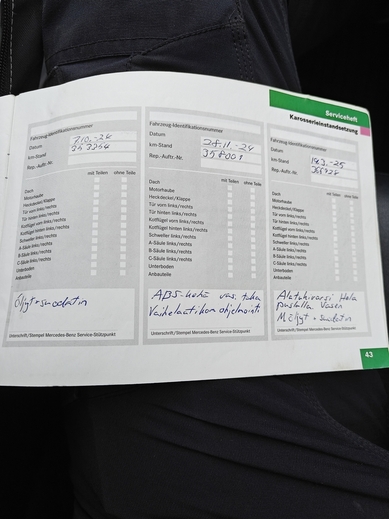 Serviceheft
Karosserieinstandsetzung
Fahrzeug-Identifikationsnummer
Datum 7.10.-24
km-Stand 353264
Rep.-Auftr.-Nr.
mit Teilen ohne Teile
Dach
Motorhaube
Heckdeckel/Klappe
Tür vorn links/rechts
Tür hinten links/rechts
Kotflügel vorn links/rechts
Kotflügel hinten links/rechts
Schweller links/rechts
A-Säule links/rechts
B-Säule links/rechts
C-Säule links/rechts
Unterboden
Anbauteile
Öljyt+suodatin
Unterschrift/Stempel Mercedes-Benz Service-Stützpunkt
Fahrzeug-Identifikationsnummer
Datum
km-Stand 28.11.-24
Rep.-Auftr.-Nr. 358001
mit Teilen ohne Teile
Dach
Motorhaube
Heckdeckel/Klappe
Tür vorn links/rechts
Tür hinten links/rechts
Kotflügel vorn links/rechts
Kotflügel hinten links/rechts
Schweller links/rechts
A-Säule links/rechts
B-Säule links/rechts
C-Säule links/rechts
Unterboden
Anbauteile
ABS-kehä vas. taka
Vaihelaatikon ohjelmointi
Unterschrift/Stempel Mercedes-Benz Service-Stützpunkt
Fahrzeug-Identifikationsnummer
Datum
km-Stand 14.3.-25
Rep.-Auftr.-Nr.
mit Teilen ohne Teile
Dach
Motorhaube
Heckdeckel/Klappe
Tür vorn links/rechts
Tür hinten links/rechts
Kotflügel vorn links/rechts
Kotflügel hinten links/rechts
Schweller links/rechts
A-Säule links/rechts
B-Säule links/rechts
C-Säule links/rechts
Unterboden
Anbauteile
Alatukivarsi Hela
puslalla Vasen
Möljyt + suodatin
Unterschrift/Stempel Mercedes-Benz Service-Stützpunkt
43